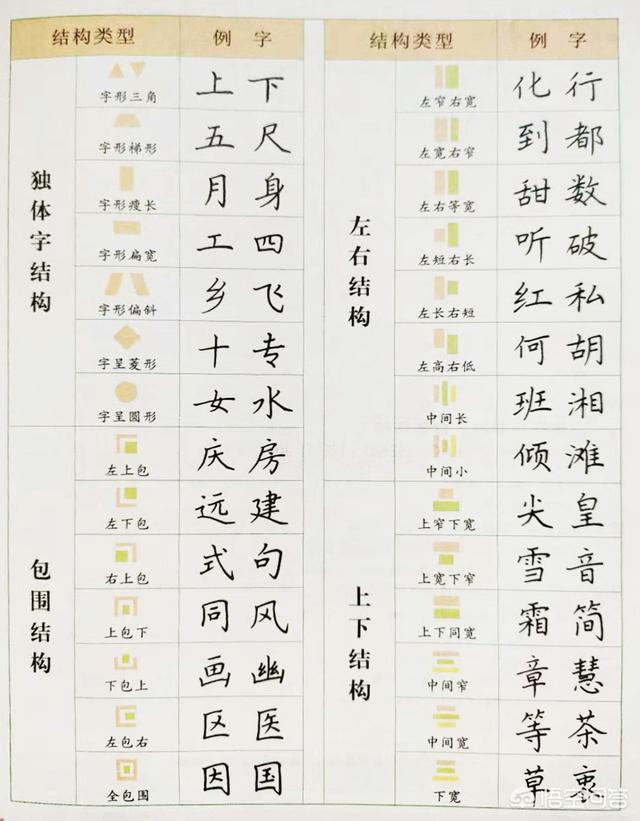 结构类型 例 字
独体字结构
字形三角 上 下
字形梯形 五 尺
字形瘦长 月 身
字形扁宽 工 四
字形偏斜 乡 飞
字呈菱形 十 专
字呈圆形 女 水
包围结构
左上包 庆 房
左下包 远 建
右上包 式 句
上包下 同 风
下包上 画 幽
左包右 区 医
全包围 因 国
结构类型 例 字
左右结构
左窄右宽 化 行
左宽右窄 到 都
左右等宽 甜 数
左短右长 听 破
左长右短 红 私
左高右低 何 胡
中间长 班 湘
中间小 倾 滩
上下结构
上窄下宽 尖 皇
上宽下窄 雪 音
上下同宽 霜 简
中间窄 章 慧
中间宽 等 茶
下宽 草 裹
悟空问答